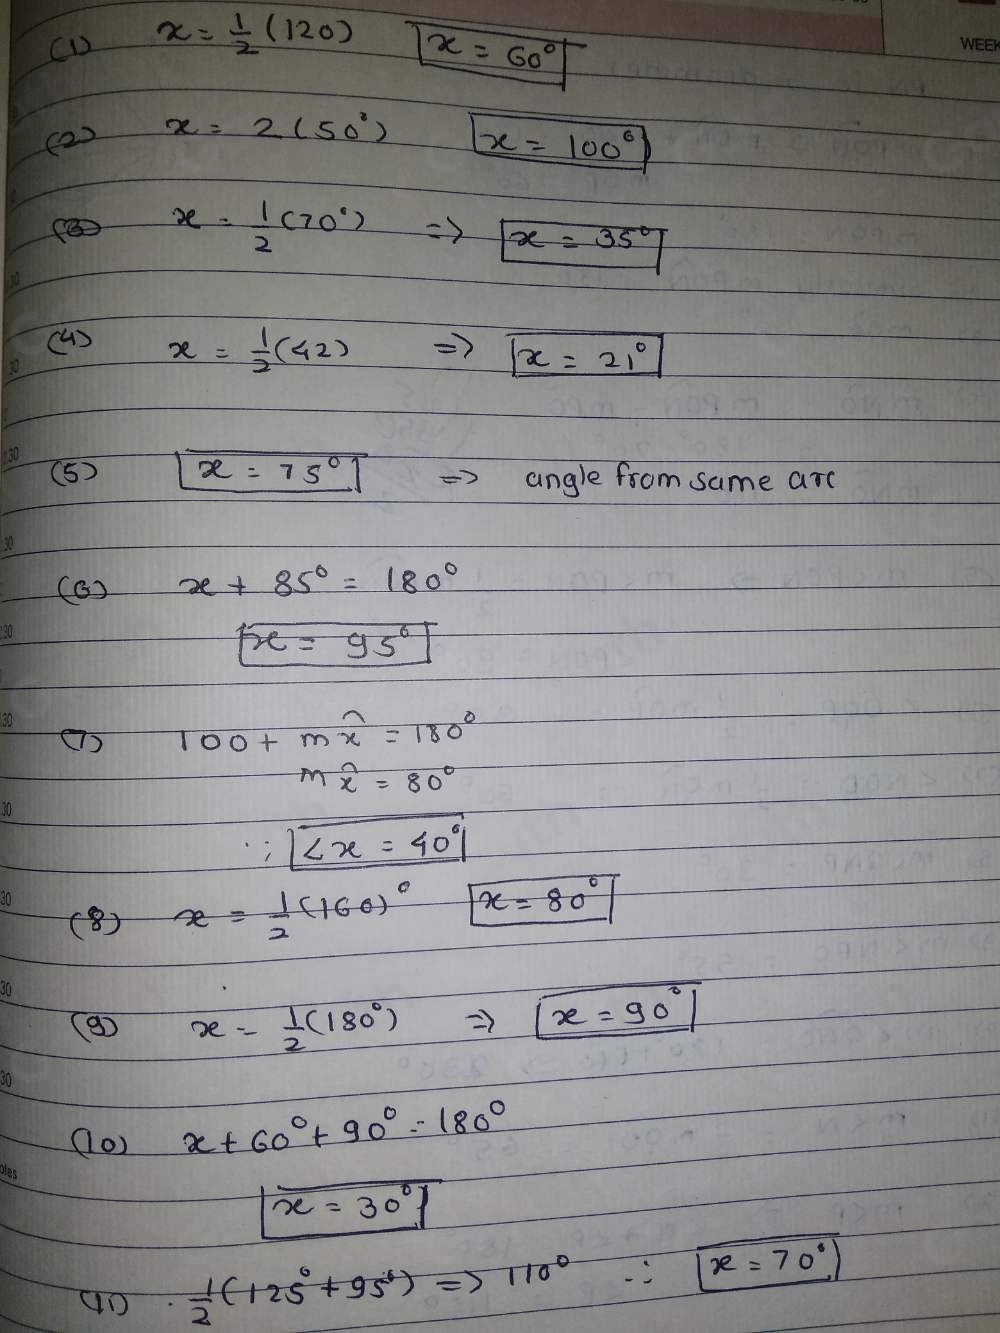 WEEK
(1) x = 1/2 (120) x = 60°
(2) x = 2 (50°) x = 100°
(3) x = 1/2 (70°) => x = 35°
(4) x = 1/2 (42) => x = 21°
(5) x = 75° => angle from same arc
(6) x + 85° = 180°
x = 95°
(7) 100 + m x̂ = 180°
m x̂ = 80°
∴ ∠x = 40°
(8) x = 1/2 (160)° x = 80°
(9) x = 1/2 (180°) => x = 90°
(10) x + 60° + 90° = 180°
x = 30°
(11) 1/2 (125° + 95°) => 110° ∴ x = 70°